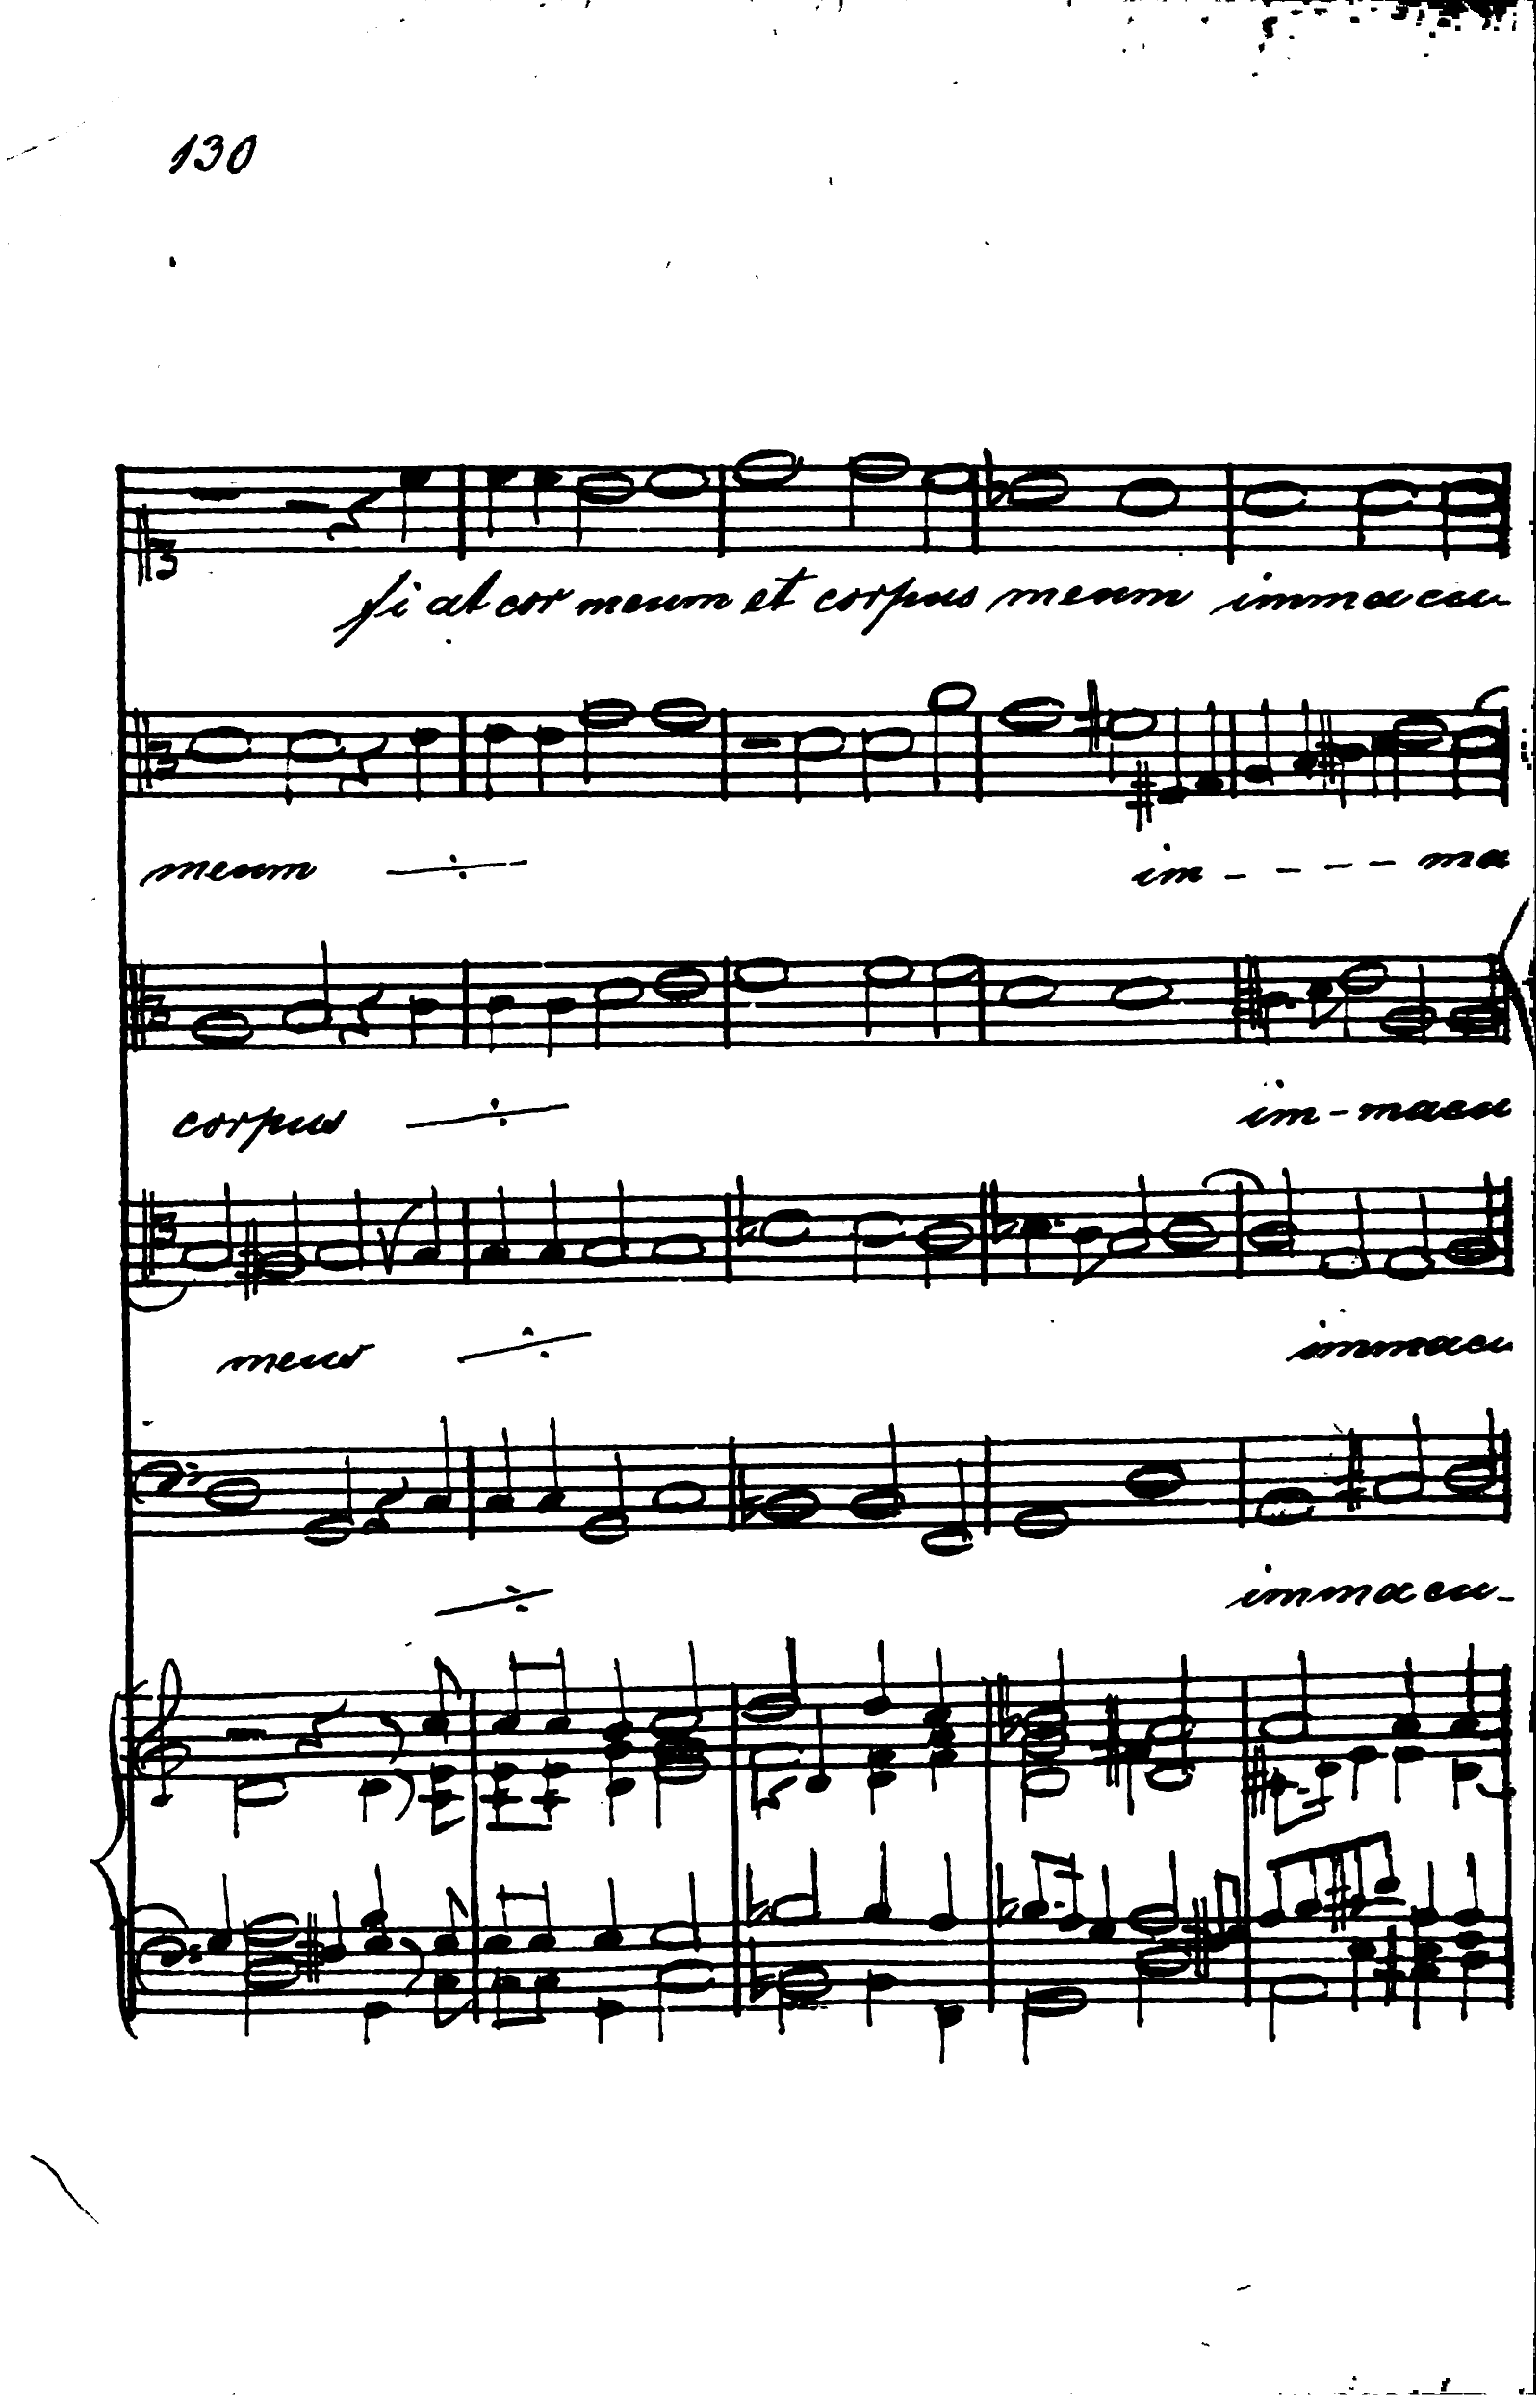 130
fi at cor meum et corpus meum immacu-
meum im - - - - ma
corpus im - macu
meus immacu
immacu-